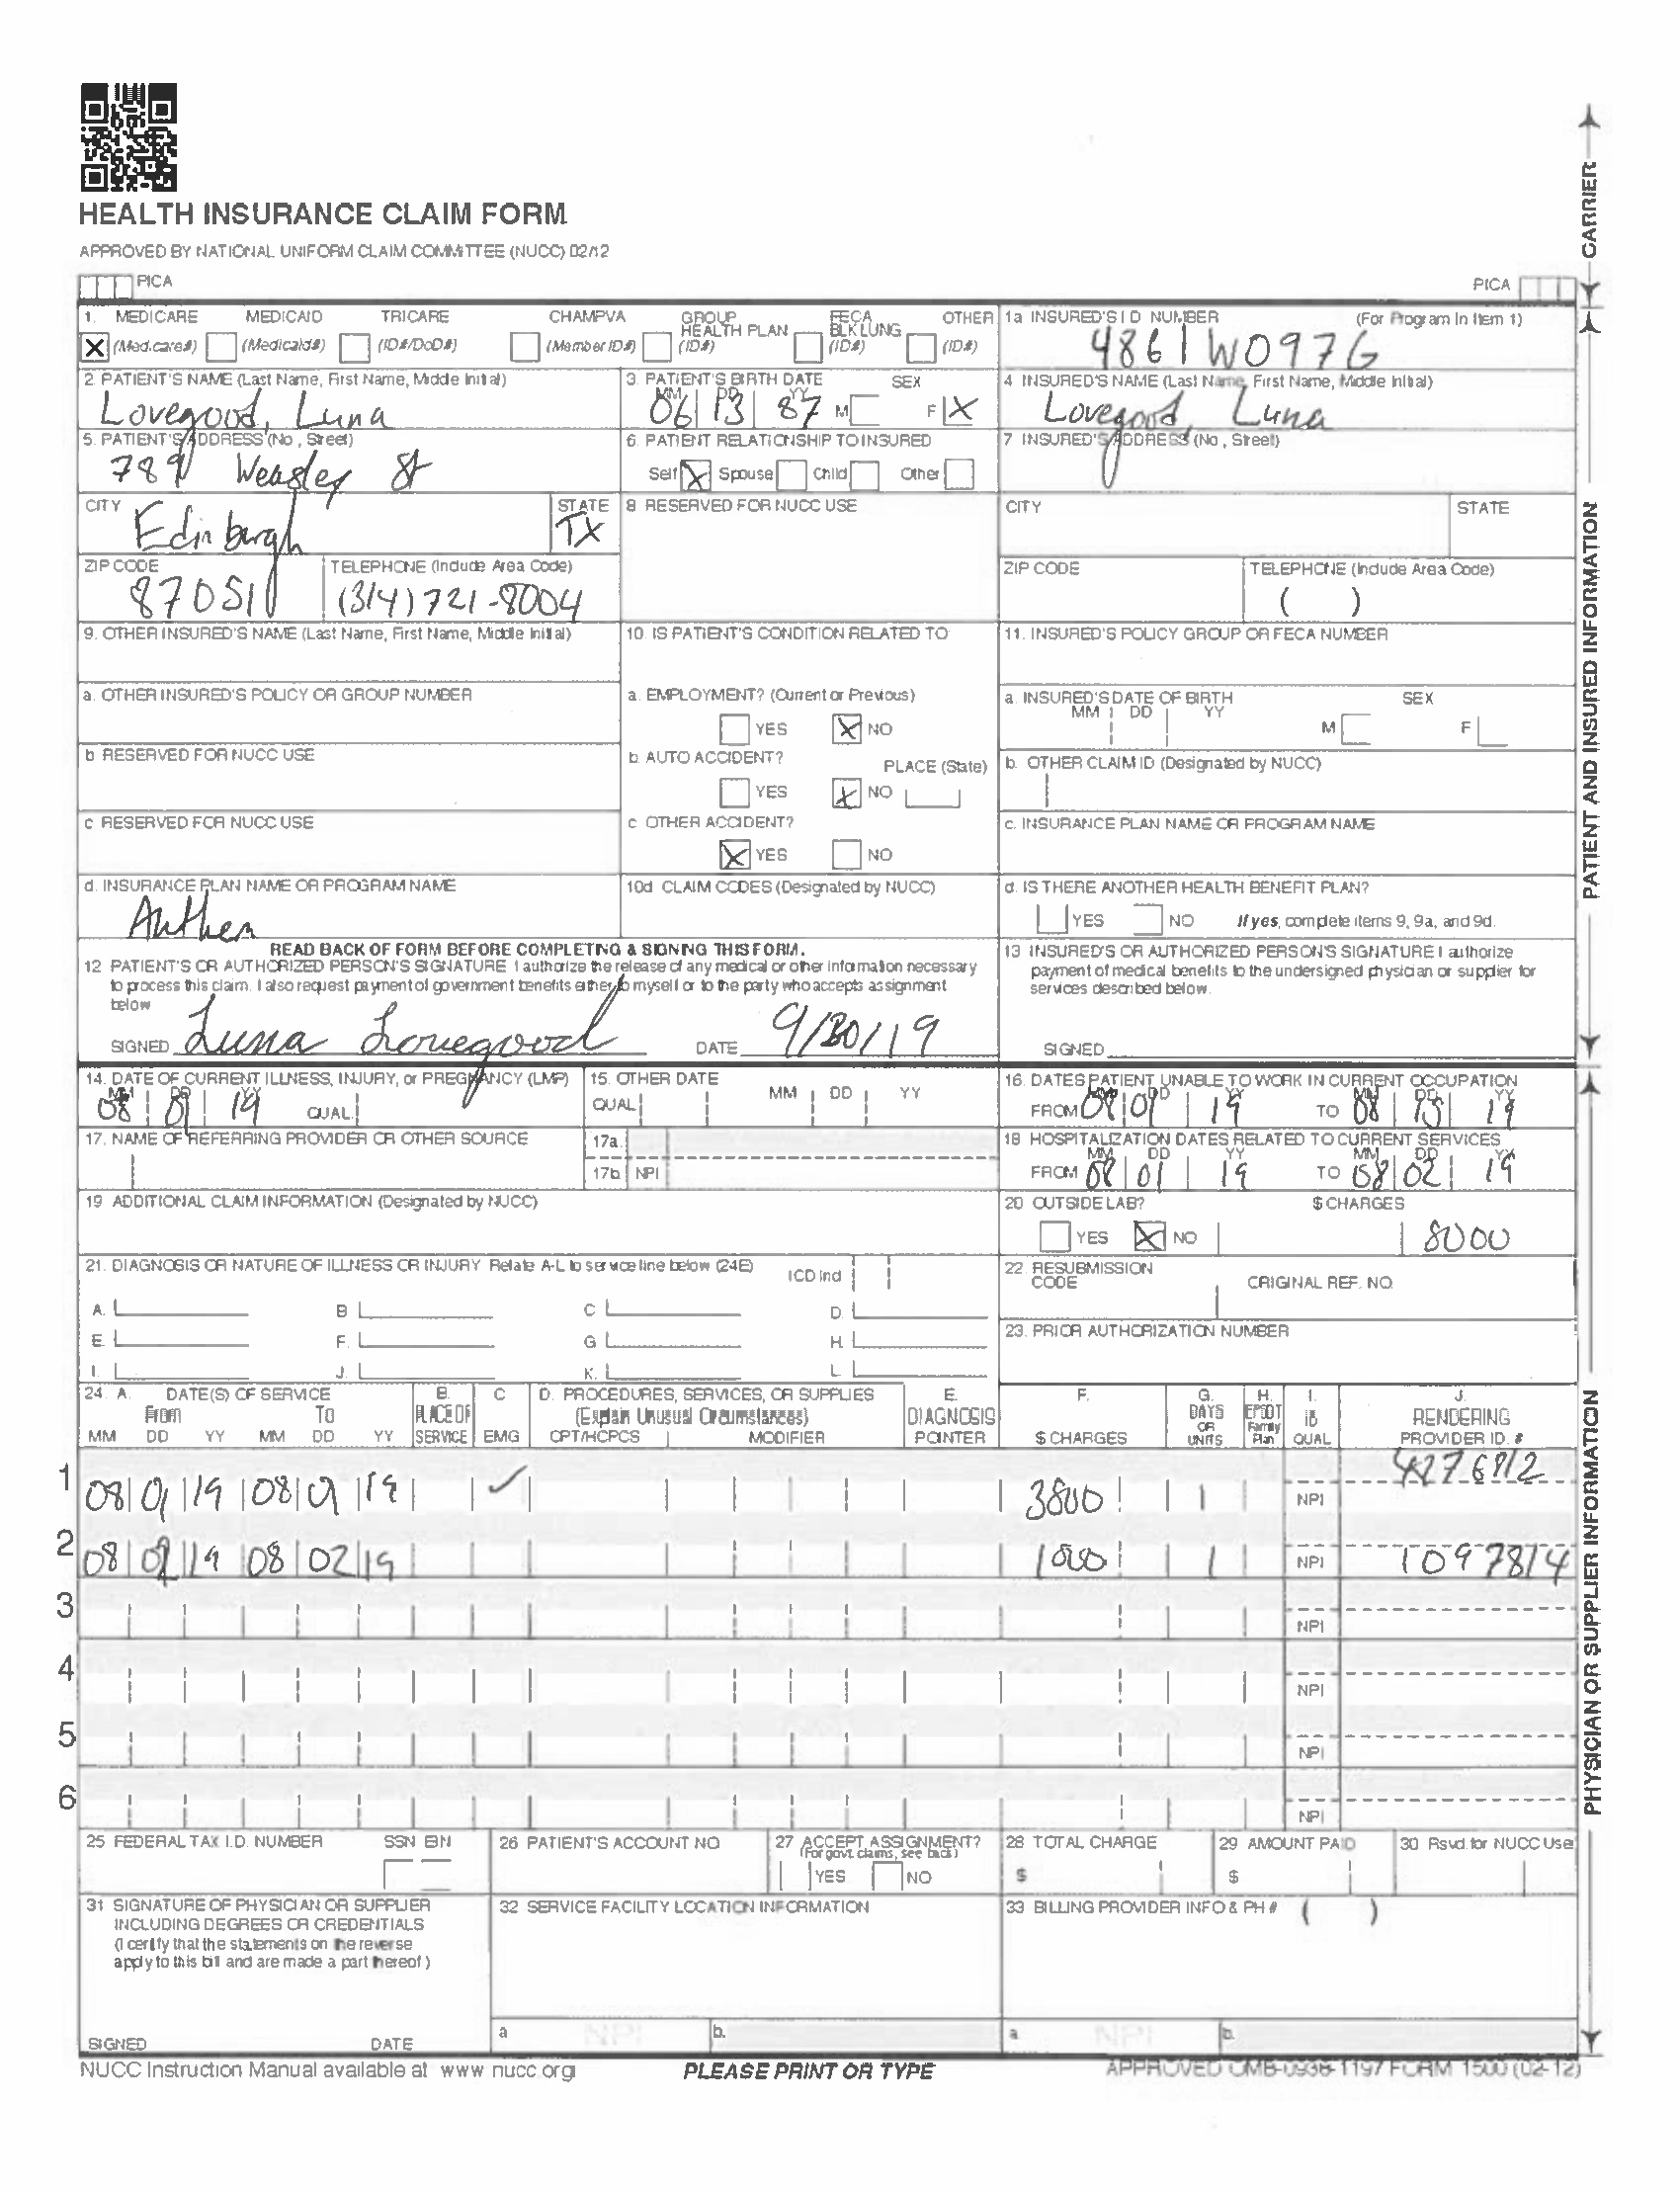 HEALTH INSURANCE CLAIM FORM
APPROVED BY NATIONAL UNIFORM CLAIM COMMITTEE (NUCC) 02/12
PICA PICA
CARRIER
1. MEDICARE MEDICAID TRICARE CHAMPVA GROUP HEALTH PLAN FECA BLK LUNG OTHER
X (Medicare#) (Medicaid#) (ID#/DoD#) (Member ID#) (ID#) (ID#) (ID#)
1a INSURED'S I D NUMBER (For Program In Item 1)
4861W097G
2. PATIENT'S NAME (Last Name, First Name, Middle Initial)
Lovegood, Luna
3. PATIENT'S BIRTH DATE SEX
MM DD YY
06 13 87 M F X
4 INSURED'S NAME (Last Name, First Name, Middle Initial)
Lovegood, Luna
5. PATIENT'S ADDRESS (No , Street)
789 Weasley St
6. PATIENT RELATIONSHIP TO INSURED
Self X Spouse Child Other
7 INSURED'S ADDRESS (No , Street)
CITY STATE
Edinburgh TX
8 RESERVED FOR NUCC USE
CITY STATE
ZIP CODE TELEPHONE (Include Area Code)
87051 (314) 721-8004
ZIP CODE TELEPHONE (Include Area Code)
( )
9. OTHER INSURED'S NAME (Last Name, First Name, Middle Initial)
10. IS PATIENT'S CONDITION RELATED TO
11. INSURED'S POLICY GROUP OR FECA NUMBER
a. OTHER INSURED'S POLICY OR GROUP NUMBER
a. EMPLOYMENT? (Current or Previous)
YES X NO
a. INSURED'S DATE OF BIRTH SEX
MM DD YY M F
b RESERVED FOR NUCC USE
b. AUTO ACCIDENT? PLACE (State)
YES X NO
b. OTHER CLAIM ID (Designated by NUCC)
c RESERVED FOR NUCC USE
c. OTHER ACCIDENT?
X YES NO
c. INSURANCE PLAN NAME OR PROGRAM NAME
d. INSURANCE PLAN NAME OR PROGRAM NAME
Anthem
10d CLAIM CODES (Designated by NUCC)
d. IS THERE ANOTHER HEALTH BENEFIT PLAN?
YES NO If yes, complete items 9, 9a, and 9d.
READ BACK OF FORM BEFORE COMPLETING & SIGNING THIS FORM.
12 PATIENT'S OR AUTHORIZED PERSON'S SIGNATURE I authorize the release of any medical or other information necessary
to process this claim. I also request payment of government benefits either to myself or to the party who accepts assignment
below
SIGNED Luna Lovegood DATE 9/30/19
13 INSURED'S OR AUTHORIZED PERSON'S SIGNATURE I authorize
payment of medical benefits to the undersigned physician or supplier for
services described below.
SIGNED
PATIENT AND INSURED INFORMATION
14. DATE OF CURRENT ILLNESS, INJURY, or PREGNANCY (LMP)
MM DD YY
08 01 19 QUAL
15. OTHER DATE
QUAL MM DD YY
16. DATES PATIENT UNABLE TO WORK IN CURRENT OCCUPATION
MM DD YY MM DD YY
FROM 08 01 19 TO 08 15 19
17. NAME OF REFERRING PROVIDER OR OTHER SOURCE
17a.
17b NPI
18 HOSPITALIZATION DATES RELATED TO CURRENT SERVICES
MM DD YY MM DD YY
FROM 08 01 19 TO 08 02 19
19 ADDITIONAL CLAIM INFORMATION (Designated by NUCC)
20 OUTSIDE LAB? $ CHARGES
YES X NO 8000
21. DIAGNOSIS OR NATURE OF ILLNESS OR INJURY Relate A-L to service line below (24E) ICD Ind
A. B C D.
E. F. G H.
I. J. K. L.
22. RESUBMISSION CODE ORIGINAL REF. NO.
23. PRIOR AUTHORIZATION NUMBER
24. A. DATE(S) OF SERVICE B. C D. PROCEDURES, SERVICES, OR SUPPLIES E. F. G. H. I. J.
From To PLACE OF (Explain Unusual Circumstances) DIAGNOSIS DAYS OR UNITS EPSDT Family Plan ID QUAL RENDERING
MM DD YY MM DD YY SERVICE EMG CPT/HCPCS MODIFIER POINTER $ CHARGES PROVIDER ID. #
1 08 01 19 08 01 19 ✓ 3800 1 NPI 4276812
2 08 19 08 02 19 1000 1 NPI 1097814
3 NPI
4 NPI
5 NPI
6 NPI
25 FEDERAL TAX I.D. NUMBER SSN EIN
26 PATIENT'S ACCOUNT NO
27 ACCEPT ASSIGNMENT?
(For govt. claims, see back)
YES NO
28 TOTAL CHARGE
$
29 AMOUNT PAID
$
30 Rsvd. for NUCC Use
31 SIGNATURE OF PHYSICIAN OR SUPPLIER
INCLUDING DEGREES OR CREDENTIALS
(I certify that the statements on the reverse
apply to this bill and are made a part thereof )
SIGNED DATE
32 SERVICE FACILITY LOCATION INFORMATION
a NPI b.
33 BILLING PROVIDER INFO & PH # ( )
a. NPI b.
PHYSICIAN OR SUPPLIER INFORMATION
NUCC Instruction Manual available at www nucc.org
PLEASE PRINT OR TYPE
APPROVED OMB-0938-1197 FORM 1500 (02-12)